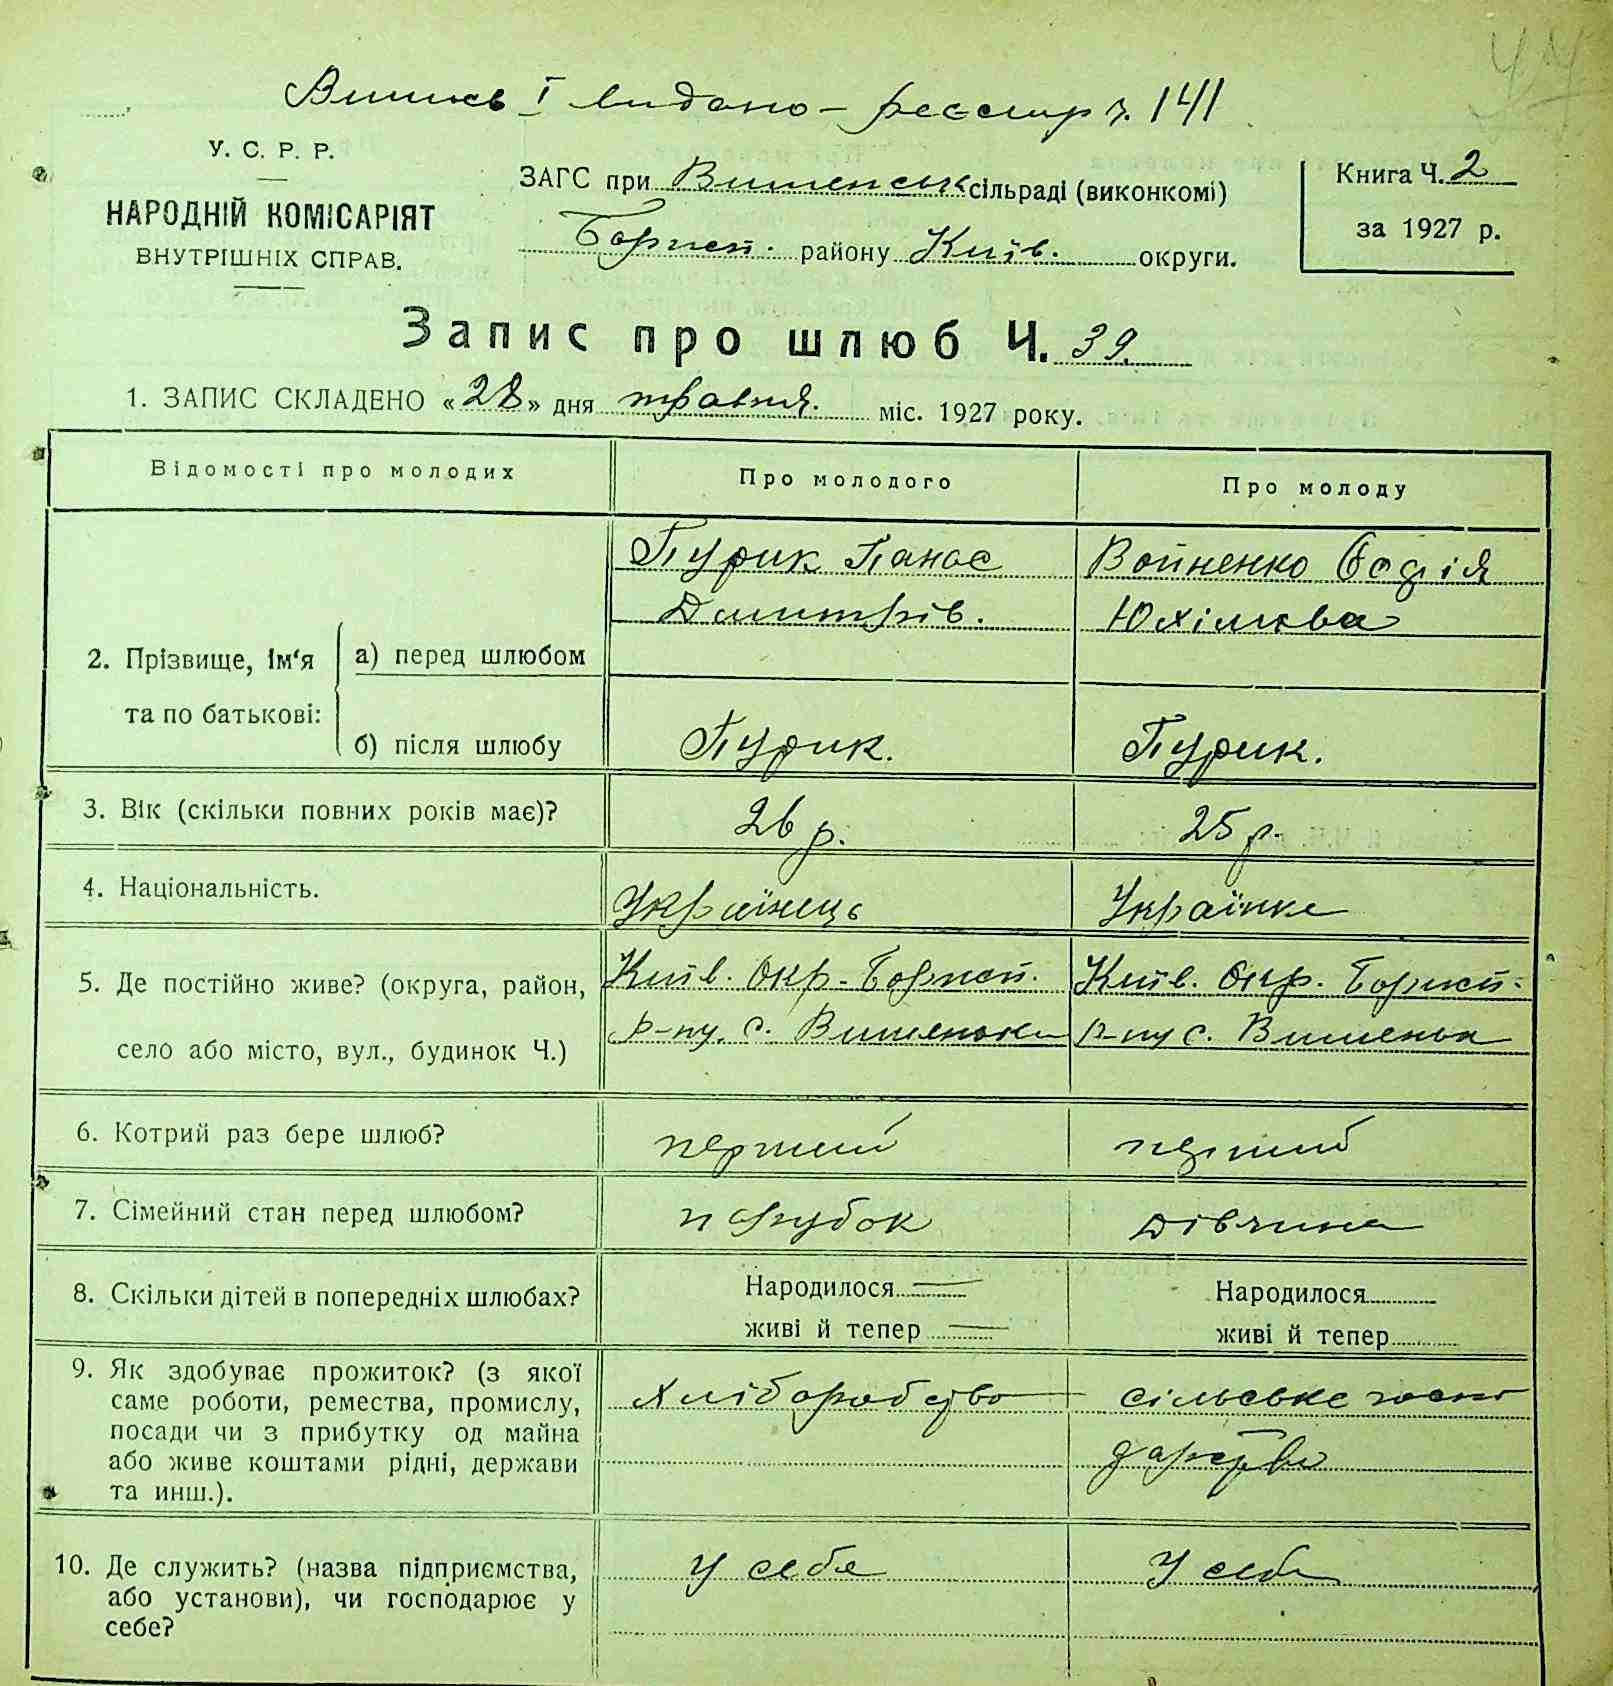 Випись І видано – реєстр ч. 141
У. С. Р. Р.
НАРОДНІЙ КОМІСАРІЯТ
ВНУТРІШНІХ СПРАВ.
ЗАГС при Вишенськ сільраді (виконкомі)
Борисп. району Київ. округи.
Книга Ч. 2
за 1927 р.
Запис про шлюб Ч. 39.
1. ЗАПИС СКЛАДЕНО «28» дня травня. міс. 1927 року.
Відомості про молодих
Про молодого
Про молоду
2. Прізвище, ім‘я та по батькові:
а) перед шлюбом
Пурик Панас
Дмитрів.
Войненко Софія
Юхімова
б) після шлюбу
Пурик.
Пурик.
3. Вік (скільки повних років має)?
26 р.
25 р.
4. Національність.
Українець
Українка
5. Де постійно живе? (округа, район,
село або місто, вул., будинок Ч.)
Київ. Окр. Борисп.
р-ну. с. Вишеньки
Київ. Окр. Борисп.
р-ну с. Вишеньк
6. Котрий раз бере шлюб?
перший
перший
7. Сімейний стан перед шлюбом?
парубок
дівчина
8. Скільки дітей в попередніх шлюбах?
Народилося
живі й тепер
Народилося
живі й тепер
9. Як здобуває прожиток? (з якої
саме роботи, ремества, промислу,
посади чи з прибутку од майна
або живе коштами рідні, держави
та инш.).
Хліборобство
сільське госпо
дарство
10. Де служить? (назва підприємства,
або установи), чи господарює у
себе?
у себе
у себе